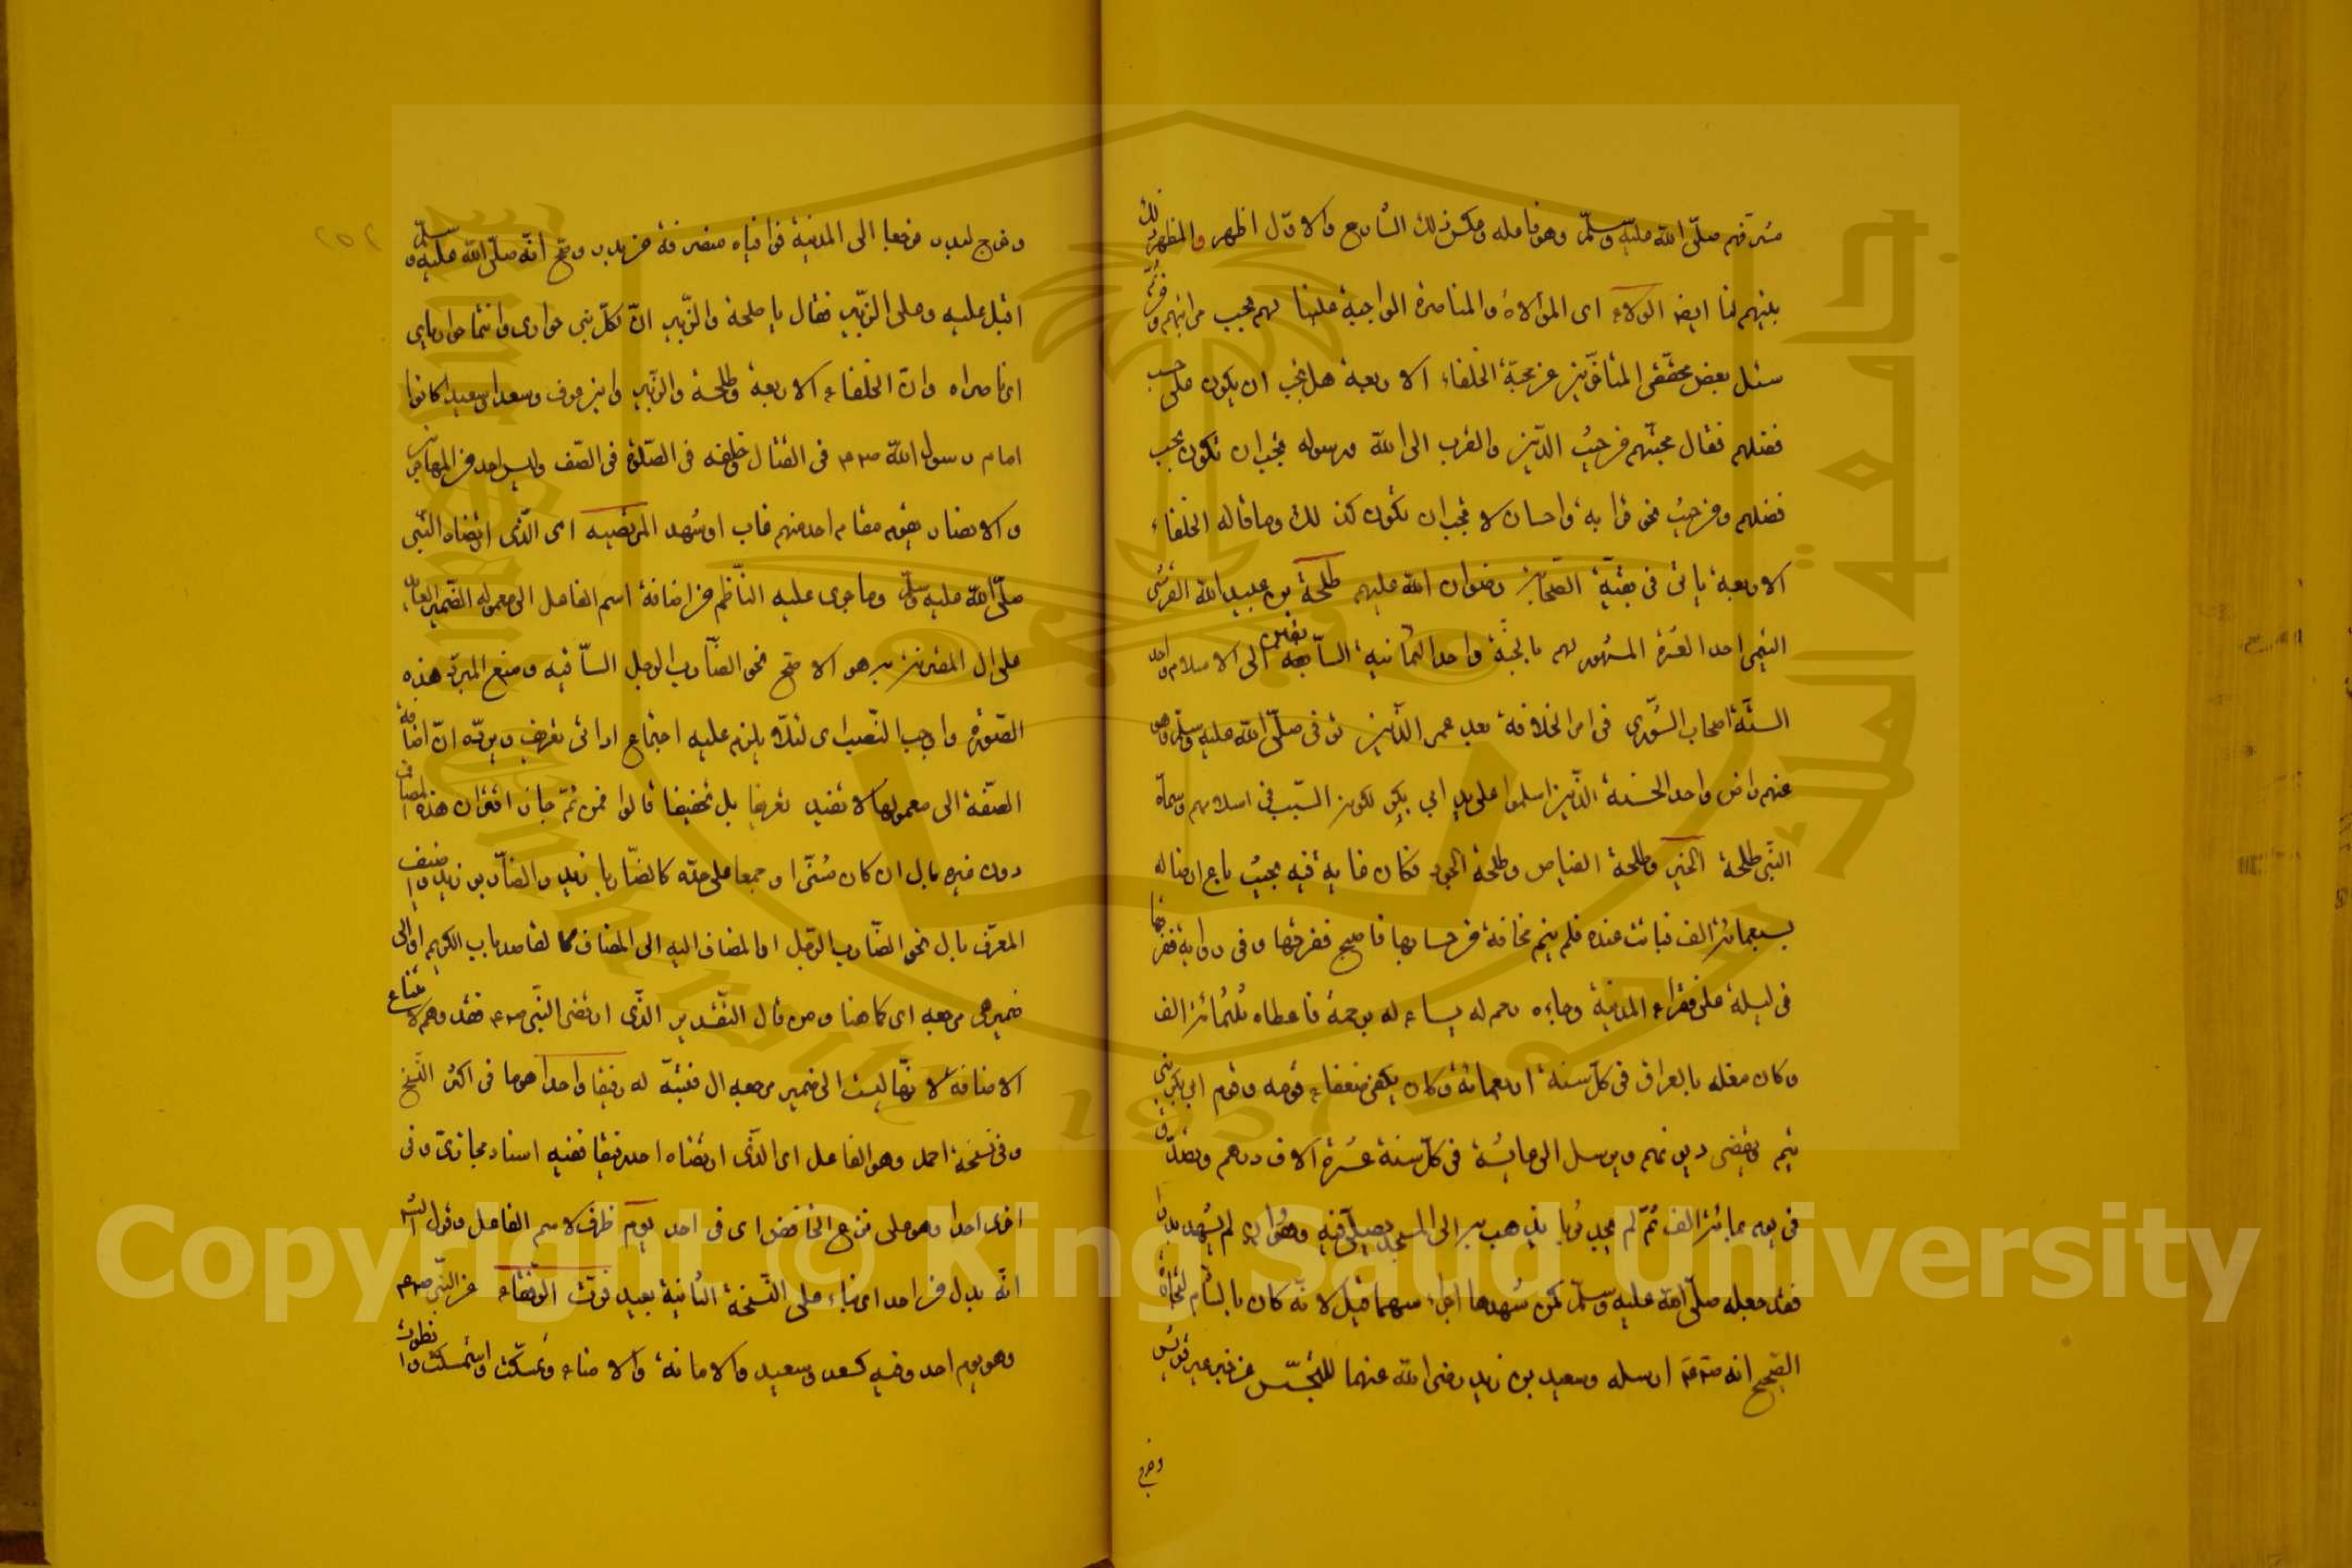 شرفهم صلى الله عليه وسلم وهو فاعله وعكس ذلك الشارح والاول اظهر والمظهر لك
بينهم لنا ايضا الولاء اى الموالاة والمناصرة الواجبة علينا لهم بحسب مراتبهم ومن ثم
سئل بعض محققى المتأخرين عن محبة الخلفاء الاربعة هل يجب ان يكون على حسب
فضلهم فقال محبتهم من حيث الدين والقرب الى الله ورسوله يجب ان تكون بحسب
فضلهم ومن حيث نحو قرابة واحسان لا يجب ان تكون كذلك وما قاله الخلفاء
الاربعة ياتى فى بقية الصحابة رضوان الله عليهم طلحة بن عبيد الله القرشى
التيمى احد العشرة المشهود لهم بالجنة واحد الثمانية السابقين الى الاسلام واحد
الستة اصحاب الشورى فى امر الخلافة بعد عمر الذين توفى صلى الله عليه وسلم وهو
عنهم راض واحد الخمسة الذين اسلموا على يد ابي بكر لكونه السبب فى اسلامهم وسماه
النبى طلحة الخير وطلحة الفياض وطلحة الجود وكان غاية فيه بحيث باع ارضا له
بسبعمائة الف فباتت عنده فلم ينم مخافة من حسابها فاصبح ففرقها وفى رواية ففرقها
فى ليلة على فقراء المدينة وجاءه رحم له يساءله برحمه فاعطاه ثلثمائة الف
وكان مغله بالعراق فى كل سنة اربعمائة وكان يكفى ضعفاء قومه وقوم ابى بكر بنى
تيم ويقضى ديونهم ويرسل الى عائشة فى كل سنة عشرة آلاف درهم وتصدق
فى يوم بمائة الف ثم لم يجد ثوبا يذهب به الى المسجد يصلى فيه وهو وان لم يشهد بدرا
فقد جعله صلى الله عليه وسلم كمن شهدها اجرا وسهما قيل لانه كان بالشام لتجارة
الصحيح انه صلعم ارسله وسعيد بن زيد رضى الله عنهما للتجسس عن خبر عير قريش
وخرج
وخرج لبدر فرجعا الى المدينة فوافياه منصرفه من بدر وصح انه صلى الله عليه وسلم
اقبل عليه وعلى الزبير فقال يا طلحة والزبير ان لكل نبى حوارى وانتما حوارياي
اى ناصراه وان الخلفاء الاربعة وطلحة والزبير وابن عوف وسعدا وسعيدا كانوا
امام رسول الله صلعم فى القتال وخلفه فى الصلوة فى الصف وليس احد من المهاجرين
والانصار يقوم مقام احد منهم غاب او شهد المرتضيه اى الذى ارتضاه النبى
صلى الله عليه وسلم وما جرى عليه الناظم من اضافة اسم الفاعل الى معموله الضمير العائد
على ال المقترنة به هو الاصح نحو الضارب الرجل الشاتمه ومنع المبرد هذه
الصورة واوجب النصب اى لئلا يلزم عليه اجتماع اداتى تعريف ويرده ان اضافة
الصفة الى معمولها لا تفيد تعريفا بل تخفيفا قالوا فمن ثم جاز اقتران هذه المضاف
دون غيره بال ان كان مثنى او جمعا على حده كالضاربا زيد والضاربو زيد واضيف
المعرف بال نحو الضارب الرجل او المضاف اليه الى المضاف كالقاصد باب الكريم او الى
ضمير هى مرجعه اى كما هنا ومن قال التقدير الذى ارتضى النبى صلعم فقد وهم لامتناع
الاضافة لانها ليست الى ضمير مرجعه ال فنبه له رفيقا واحدا هو ما فى اكثر النسخ
وفى نسخة احد وهو الفاعل اى الذى ارتضاه احد رفيقا ففيه اسناد مجازى وفى
اخرى احدا وهو على نزع الخافض اى فى احد يوم ظرف لاسم الفاعل وقول الشارح
انه بدل من احد اى بناء على النسخة الثانية بعيد فرت الرفقاء عن النبى صلعم
وهو يوم احد وفيه كسعد وسعيد والامانة والامناء وتمسكت واستمسكت وانطوت